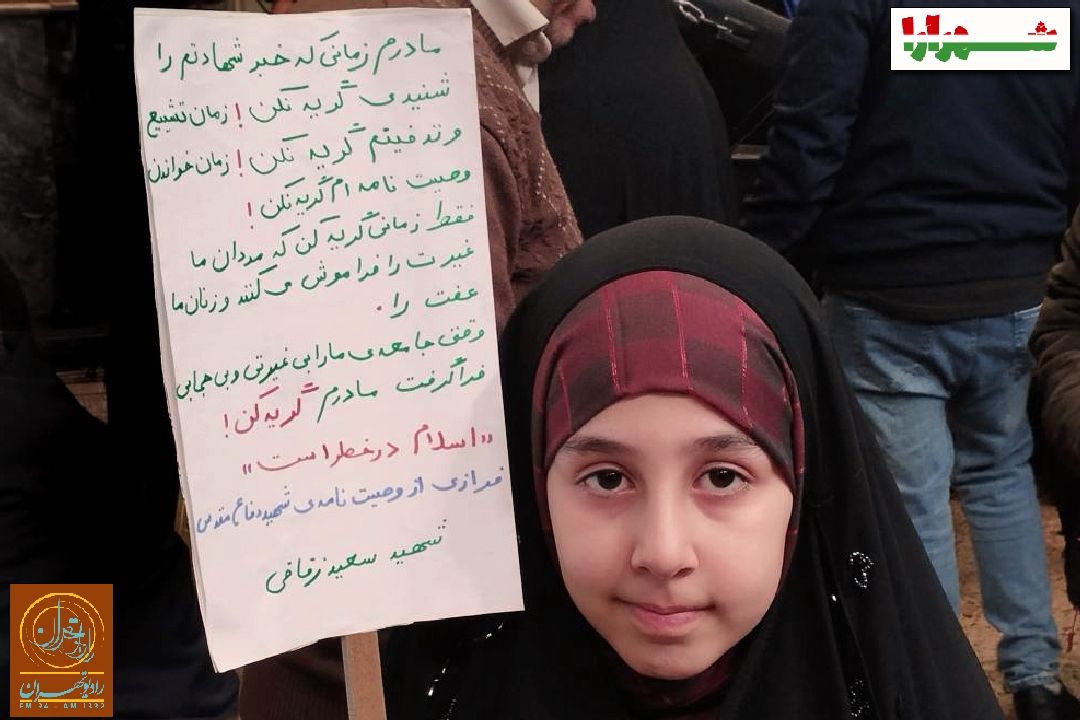 مادرم زمانی که خبر شهادتم را
شنیدی گریه نکن! زمان تشییع
و تدفینم گریه نکن! زمان خواندن
وصیت نامه ام گریه نکن!
فقط زمانی گریه کن که مردان ما
غیرت را فراموش می کنند و زنان ما
عفت را.
وقتی جامعه ی ما را بی غیرتی و بی حجابی
فرا گرفت مادرم گریه کن!
«اسلام در خطر است»
فرازی از وصیت نامه ی شهید دفاع مقدس
شهید سعید زقاقی
شهرآرا
رادیو تهران
رادیو تهران
FM 94 - AM 1332